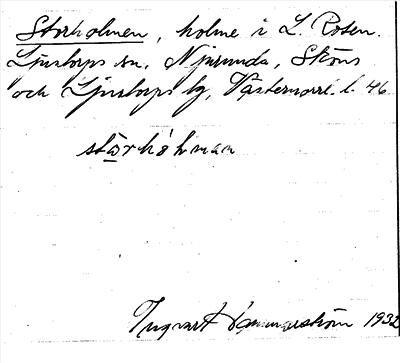 Storholmen, holme i L. Rosen.
Ljustorps sn, Njurunda, Sköns
och Ljustorps tg, Västernorrl. l. 46
stɷrhòlman
Ingvart Hammarström 1932